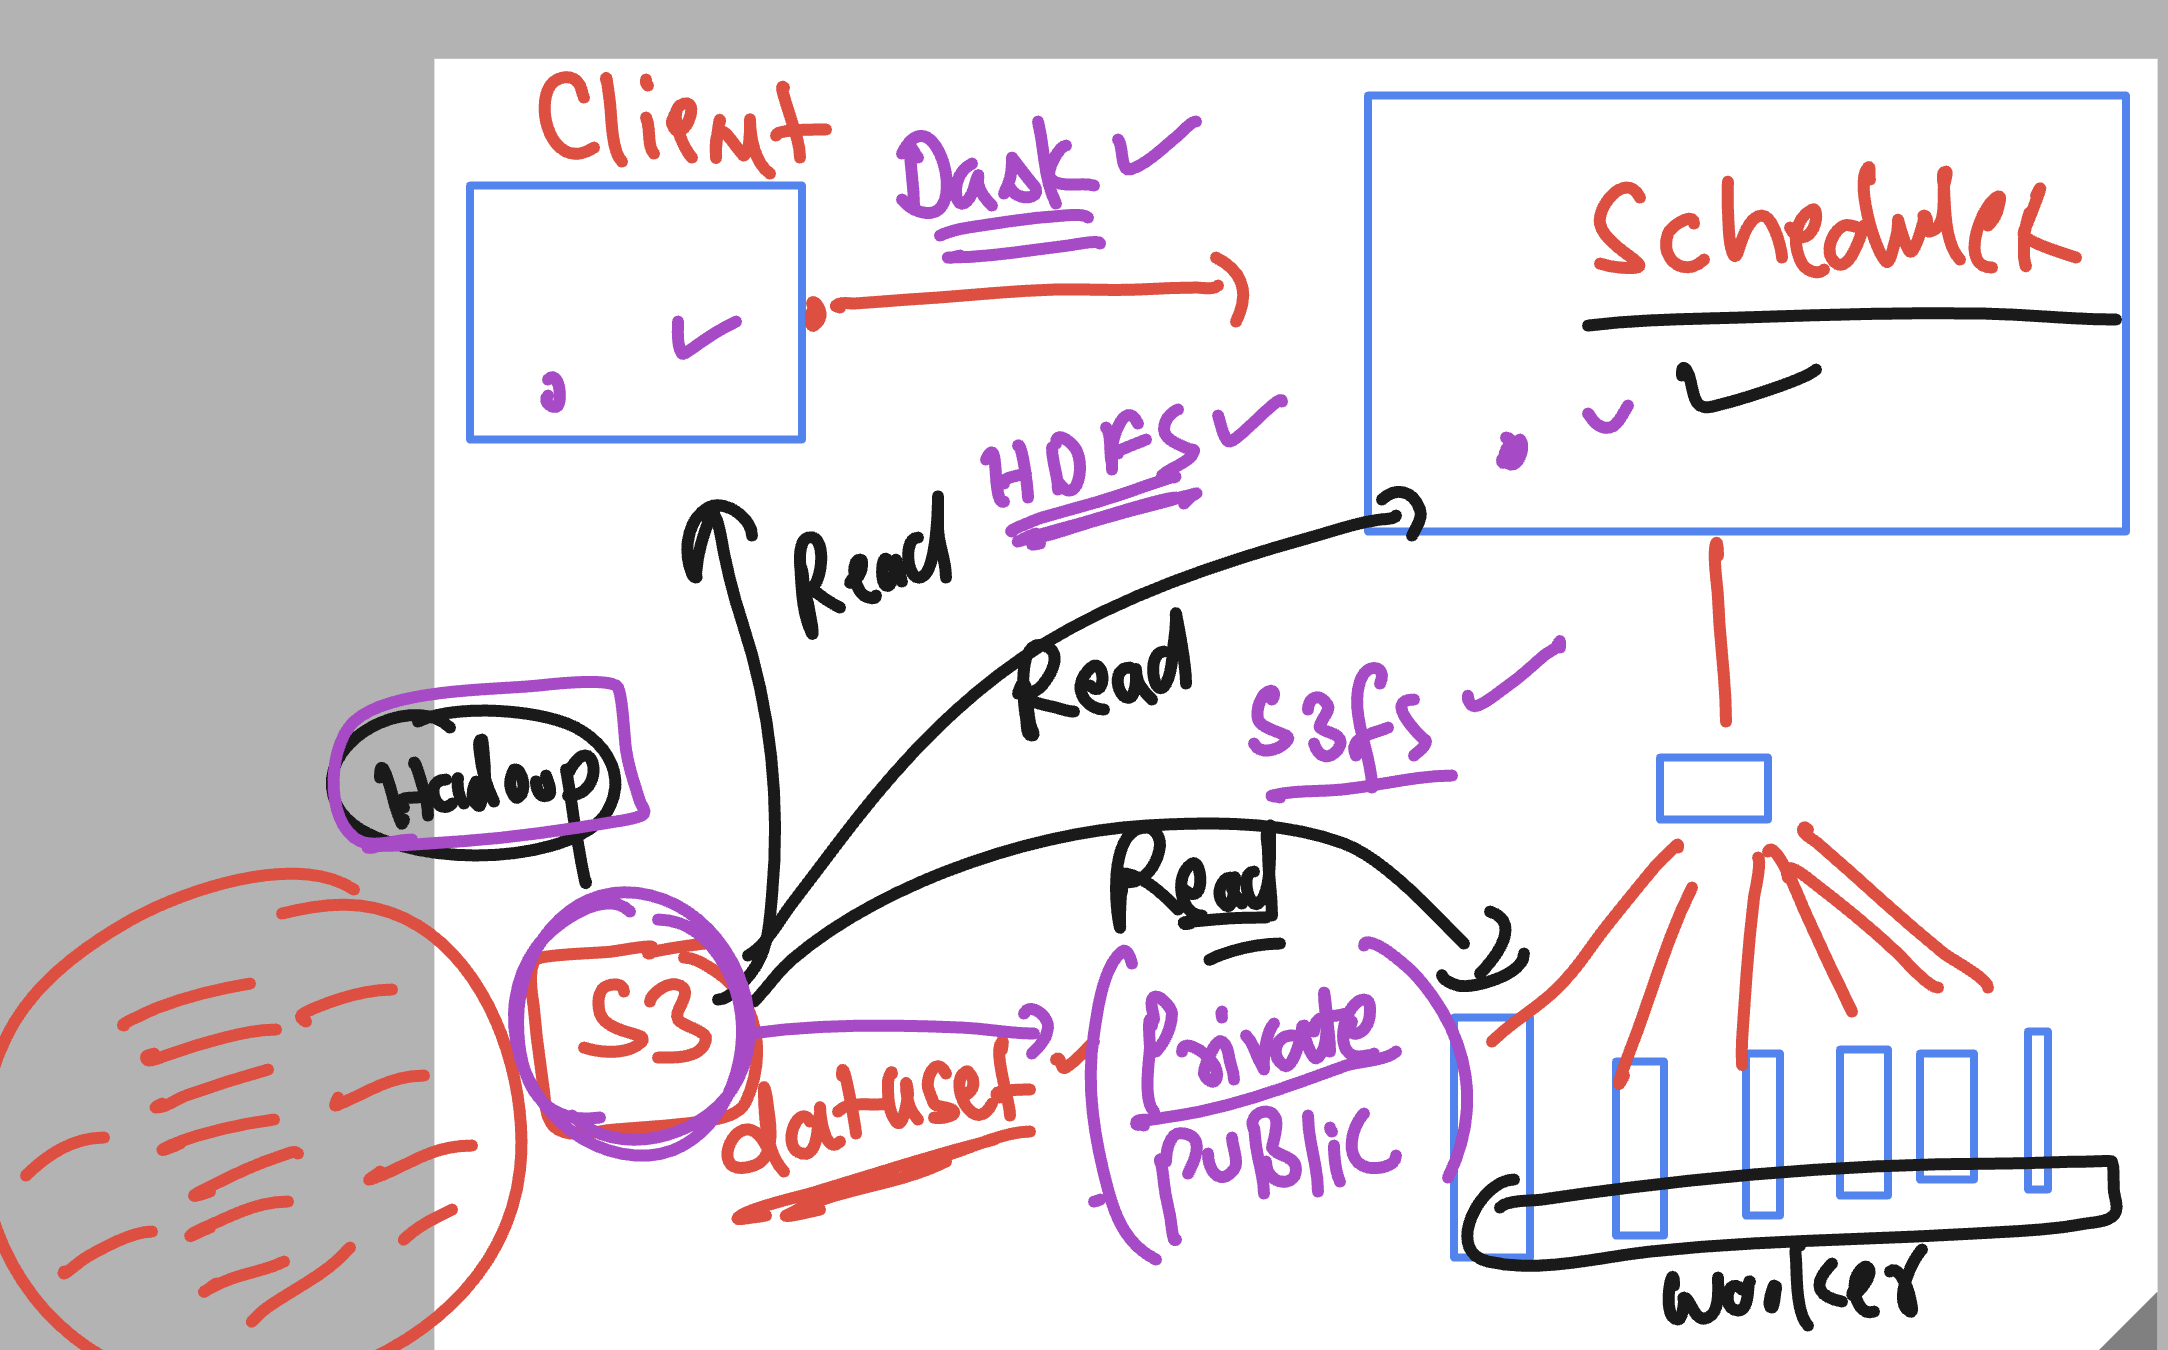 Client
Dask
Scheduler
HDFS
Read
Read
S3fs
Hadoop
Read
S3
dataset
Private
PUBLIC
worker